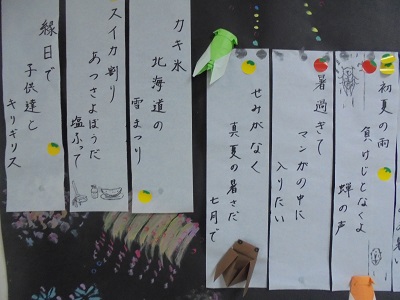 初夏の雨
負けじとなくよ
蝉の声
暑過ぎて
マンガの中に
入りたい
せみがなく
真夏の暑さだ
七月で
カキ氷
北海道の
雪まつり
スイカ割り
あつさよぼうだ
塩ふって
縁日で
子供達と
キリギリス